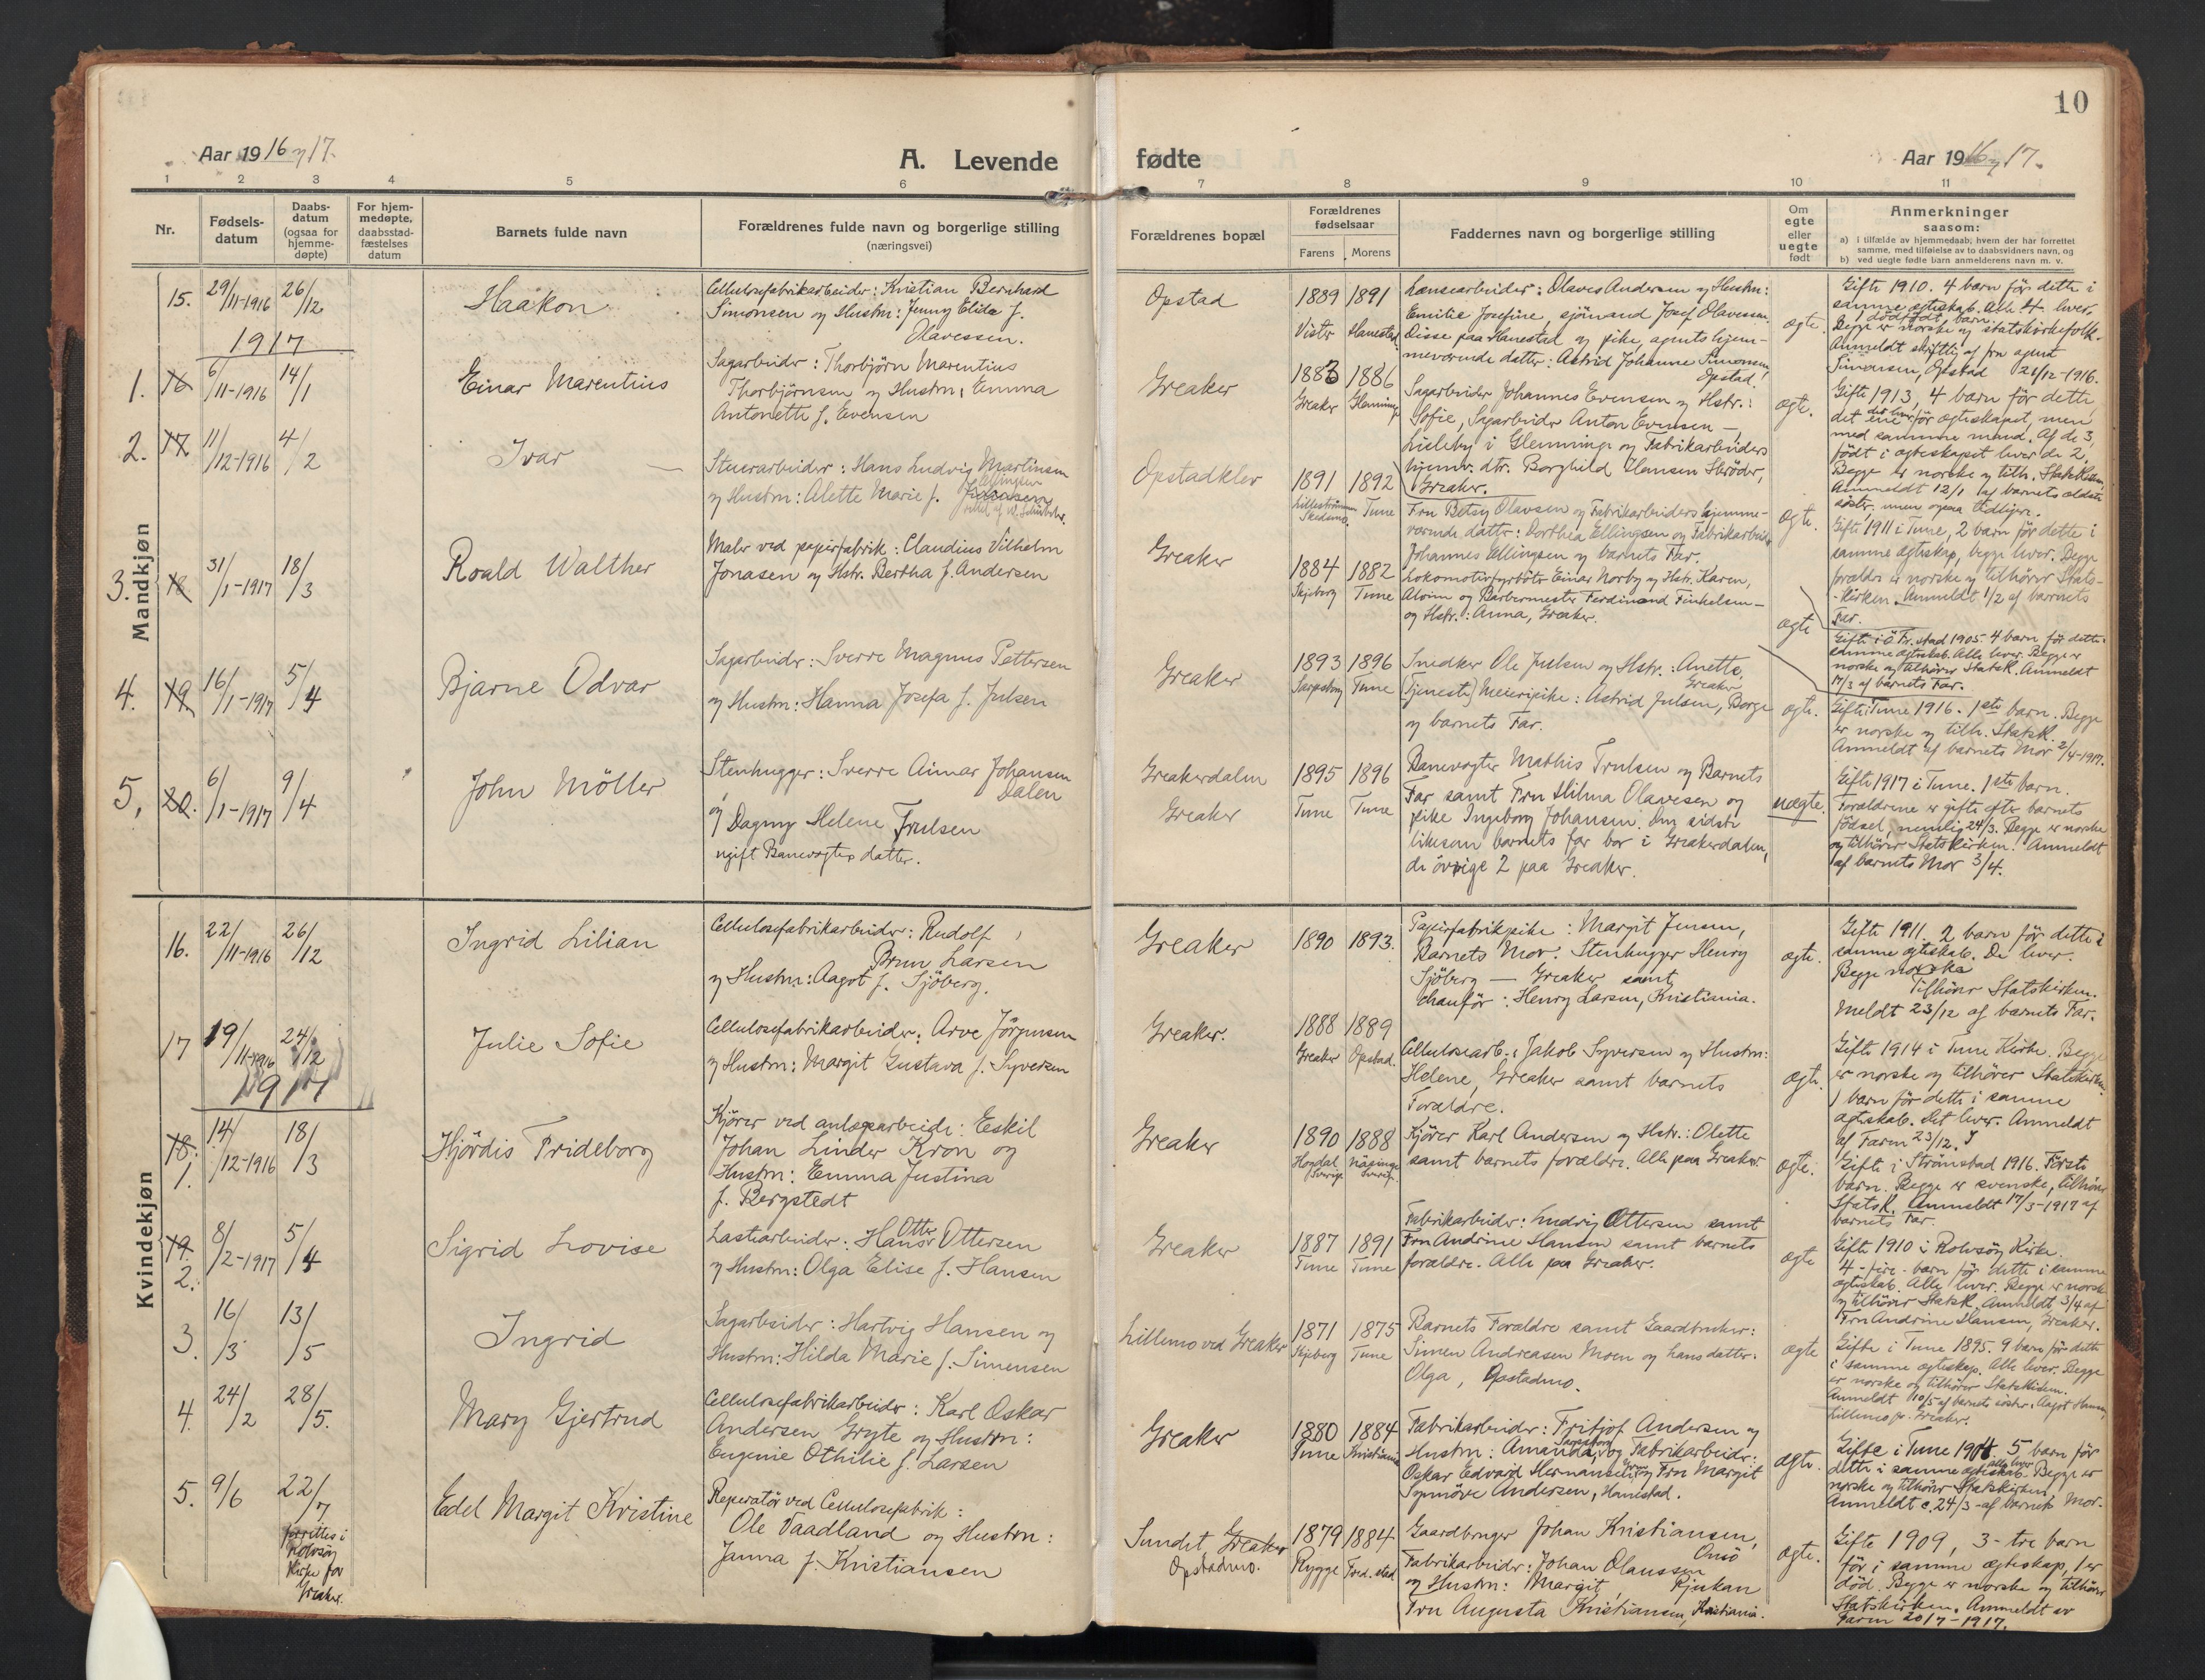 10
Aar 1916 og 17.
A. Levende
fødte
Aar 1916 og 17.
1 2 3 4 5 6 7 8 9 10 11
Nr.
Fødsels-
datum
Daabs-
datum
(ogsaa for
hjemme-
døpte)
For hjem-
medøpte,
daabsstad-
fæstelses
datum
Barnets fulde navn
Forældrenes fulde navn og borgerlige stilling
(næringsvei)
Forældrenes bopæl
Forældrenes
fødselsaar
Farens
Morens
Faddernes navn og borgerlige stilling
Om
egte
eller
uegte
født
Anmerkninger
saasom:
a) i tilfælde av hjemmedaab; hvem der har forrettet
samme, med tilføielse av to daabsvidners navn, og
b) ved uegte fødte barn anmelderens navn m. v.
Mandkjøn
15. 29/11-1916 26/12
Haakon
Cellulosefabrikarbeider: Kristian Bernhard
Simonsen og Hustru: Jenny Elida f.
Olavessen.
Opstad
1889 1891
Vister Hanestad
Lænsearbeider: Olaves Andersen og Hustru:
Emilie Josefine, sjömand Josef Olavessen.
Disse paa Hanestad og pike, agents hjem-
meværende datter: Astrid Johanne Simonsen,
Opstad.
ægte.
Gifte 1910. 4 barn för dette i
samme ægteskab. Alle 4 lever,
1 dödfödt barn.
Begge er norske og statskirkefolk.
Anmeldt skriftlig af fru agent
Simonsen, Opstad 21/12-1916.
1917
1. 16 6/11-1916 14/1
Einar Marentius
Sagarbeider: Thorbjörn Marentius
Thorbjörnsen og Hustru: Emma
Antonette f. Evensen
Greaker
1883 1886
Greaker Glemminge
Sagarbeider Johannes Evensen og Hstr.:
Sofie, Sagarbeider Anton Evensen —
Lisleby i Glemminge og Fabrikarbeiders
hjemv. dtr. Borghild Hansen Skröder,
Greaker.
ægte.
Gifte 1913, 4 barn för dette,
det ene för ægteskapet, men
med samme mand. Af de 3,
födt i ægteskapet lever de 2.
Begge er norske og tilh. Statskirken,
Anmeldt 12/1 af barnets ældste
söster, men ogsaa tidligere.
2. 17 11/12-1916 4/2
Ivar
Stuerarbeider: Hans Ludvig Martinsen
og Hustru: Alette Marie f. Ellingsen
Opstadklev
1891 1892
Lilleströmmen Skedsmo. Tune
Fru Betsy Olavsen og Fabrikarbeiders hjemme-
værende datter: Dorthea Ellingsen og Fabrikarbeider
Johannes Ellingsen og barnets Far.
ægte.
Gifte 1911 i Tune, 2 barn för dette i
samme ægteskap, begge lever. Begge
forældre er norske og tilhörer Stats-
-kirken. Anmeldt 1/2 af barnets
Far.
3. 18 31/1-1917 18/3
Roald Walther
Maler ved papirfabrik: Claudius Vilhelm
Jonasen og Hstr. Bertha f. Andersen
Greaker
1884 1882
Skjeberg Tune
Lokomotivfyrböter Einar Norby og Hstr. Karen,
Alvim og Barbermester Ferdinand Finkelsen —
og Hstr.: Anna, Greaker.
ægte
Gifte i Ö Fr. stad 1905. 4 barn för dette i
samme ægteskab. Alle lever. Begge er
norske og tilhörer StatsK. Anmeldt
17/3 af barnets Far.
4. 19 16/1-1917 5/4
Bjarne Odvar
Sagarbeider: Sverre Magnus Pettersen
og Hustru: Hanna Josefa f. Julsen
Greaker
1893 1896
Sarpsborg Tune
Snedker Ole Julsen og Hstr.: Anette,
Greaker
(Tjeneste) Meieripike: Astrid Julsen, Borge
og barnets Far.
ægte.
Gifte i Tune 1916. 1ste barn. Begge
er norske og tilh. StatsK.
Anmeldt af barnets Mor 2/4-1917.
5. 20. 6/1-1917 9/4
John Möller
Stenhugger: Sverre Aimar Johansen
Dalen
og Dagny Helene Trulsen
ugift Banevogters datter.
Greakerdalen
Greaker
1895 1896
Tune Tune
Banevogter Mathis Trulsen og Barnets
Far samt Fru Hilma Olavesen og
pike Ingeborg Johansen. Den sidste
likesom barnets far bor i Greakerdalen,
de övrige 2 paa Greaker.
uægte.
Gifte 1917 i Tune. 1ste barn.
Forældrene er gifte efter barnets
födsel, nemlig 24/3. Begge er norske
og tilhörer Statskirken. Anmeldt
af barnets Mor 3/4.
Kvindekjøn
16. 22/11-1916 26/12
Ingrid Lilian
Cellulosefabrikarbeider: Rudolf
Brun Larsen
og Hustru: Aagot f. Sjöberg.
Greaker
1890 1893.
Papirfabrikpike: Margit Jensen,
Barnets Mor. Stenhugger Henry
Sjöberg — Greaker samt
chauför: Henry Larsen, Kristiania.
ægte.
Gifte 1911. 2 barn för dette i
samme ægteskab. De lever.
Begge norske
Tilhörer Statskirken.
Meldt 23/12 af barnets Far.
17 19/11-1916 24/12
Julie Sofie
Cellulosefabrikarbeider: Arve Jörgensen
og Hustru: Margit Gustava f. Syversen
Greaker.
1888 1889
Greaker Opstad.
Cellulosearb.: Jakob Syversen og Hustru:
Helene, Greaker samt barnets
Forældre.
ægte.
Gifte 1914 i Tune Kirke. Begge
er norske og tilhörer Statskirken.
1 barn för dette i samme
ægteskab. Det lever. Anmeldt
af Faren 23/12.
1917
18. 1. 14/12-1916 18/3
Hjördis Frideborg
Kjörer ved anlægsarbeide: Eskil
Johan Linder Kron og
Hustru: Emma Justina
f. Bergstedt
Greaker
1890 1888
Hogdal Sverige Näsinge Sverige.
Kjörer Karl Andersen og Hstr.: Olette
samt barnets forældre. Alle paa Greaker.
ægte.
Gifte i Strömstad 1916. Förste
barn. Begge er svenske, tilhörer
StatsK. Anmeldt 17/3-1917 af
barnets Far.
19. 2. 8/2-1917 5/4
Sigrid Lovise
Lastearbeider: Hans Otter Ottersen
og Hustru: Olga Elise f. Hansen
Greaker
1887 1891
Tune Tune
Fabrikarbeider: Ludvig Ottersen samt
Fru Andrine Hansen samt barnets
forældre. Alle paa Greaker.
ægte
Gifte 1910 i Rolvsöy Kirke.
4 - fire - barn för dette i samme
ægteskab. Alle lever. Begge er norske
og tilhörer StatsK. Anmeldt 3/4 af
Fru Andrine Hansen, Greaker.
3. 16/3 13/5
Ingrid
Sagarbeider: Hartvig Hansen og
Hustru: Hilda Marie f. Simensen
Lillemo ved Greaker
1871 1875
Skjeberg Tune
Barnets Forældre samt Gaardbruker:
Simen Andreasen Moen og hans datter:
Olga, Opstadmo.
ægte
Gifte i Tune 1895. 9 barn för dette
i samme ægteskap. Alle lever. Begge
er norske og tilhörer Statskirken.
Anmeldt 10/5 af barnets söster: Aagot Hansen,
Lillemo pr. Greaker.
4. 24/2 28/5.
Mary Gjertrud
Cellulosefabrikarbeider: Karl Oskar
Andersen Gryte og Hustru:
Eugenie Othilie f. Larsen
Greaker
1880 1884
Tune Kristiania
Fabrikarbeider: Fritjof Andersen og
Hustru: Amanda, og Fabrikarbeider:
Oskar Edvard Hermansen og Fru Margit
Synnöve Andersen, Hanestad.
ægte.
Gifte i Tune 1904. 5 barn för
dette i samme ægteskab. alle lever Begge er
norske og tilhörer Statskirken.
Anmeldt c. 24/3 af barnets Mor.
5. 9/6 22/7
forrettes i
Rolvsöy
Kirke for
Greaker.
Edel Margit Kristine
Reperatör ved Cellulosefabrik:
Ole Vaadland og Hustru:
Janna f. Kristiansen
Sundet Greaker
Opstadmo.
1879 1884
Rygge Fred.stad
Gaardbruger Johan Kristiansen,
Onsö
Fabrikarbeider: Johan Olaussen
og Hustru: Margit, Rjukan
Fru Augusta Kristiansen, Kristiania.
ægte.
Gifte 1909, 3 - tre barn
för i samme ægteskap, 1 er
död. Begge er norske og tilhörer
Statskirken. Anmeldt av
Faren 20/7-1917.